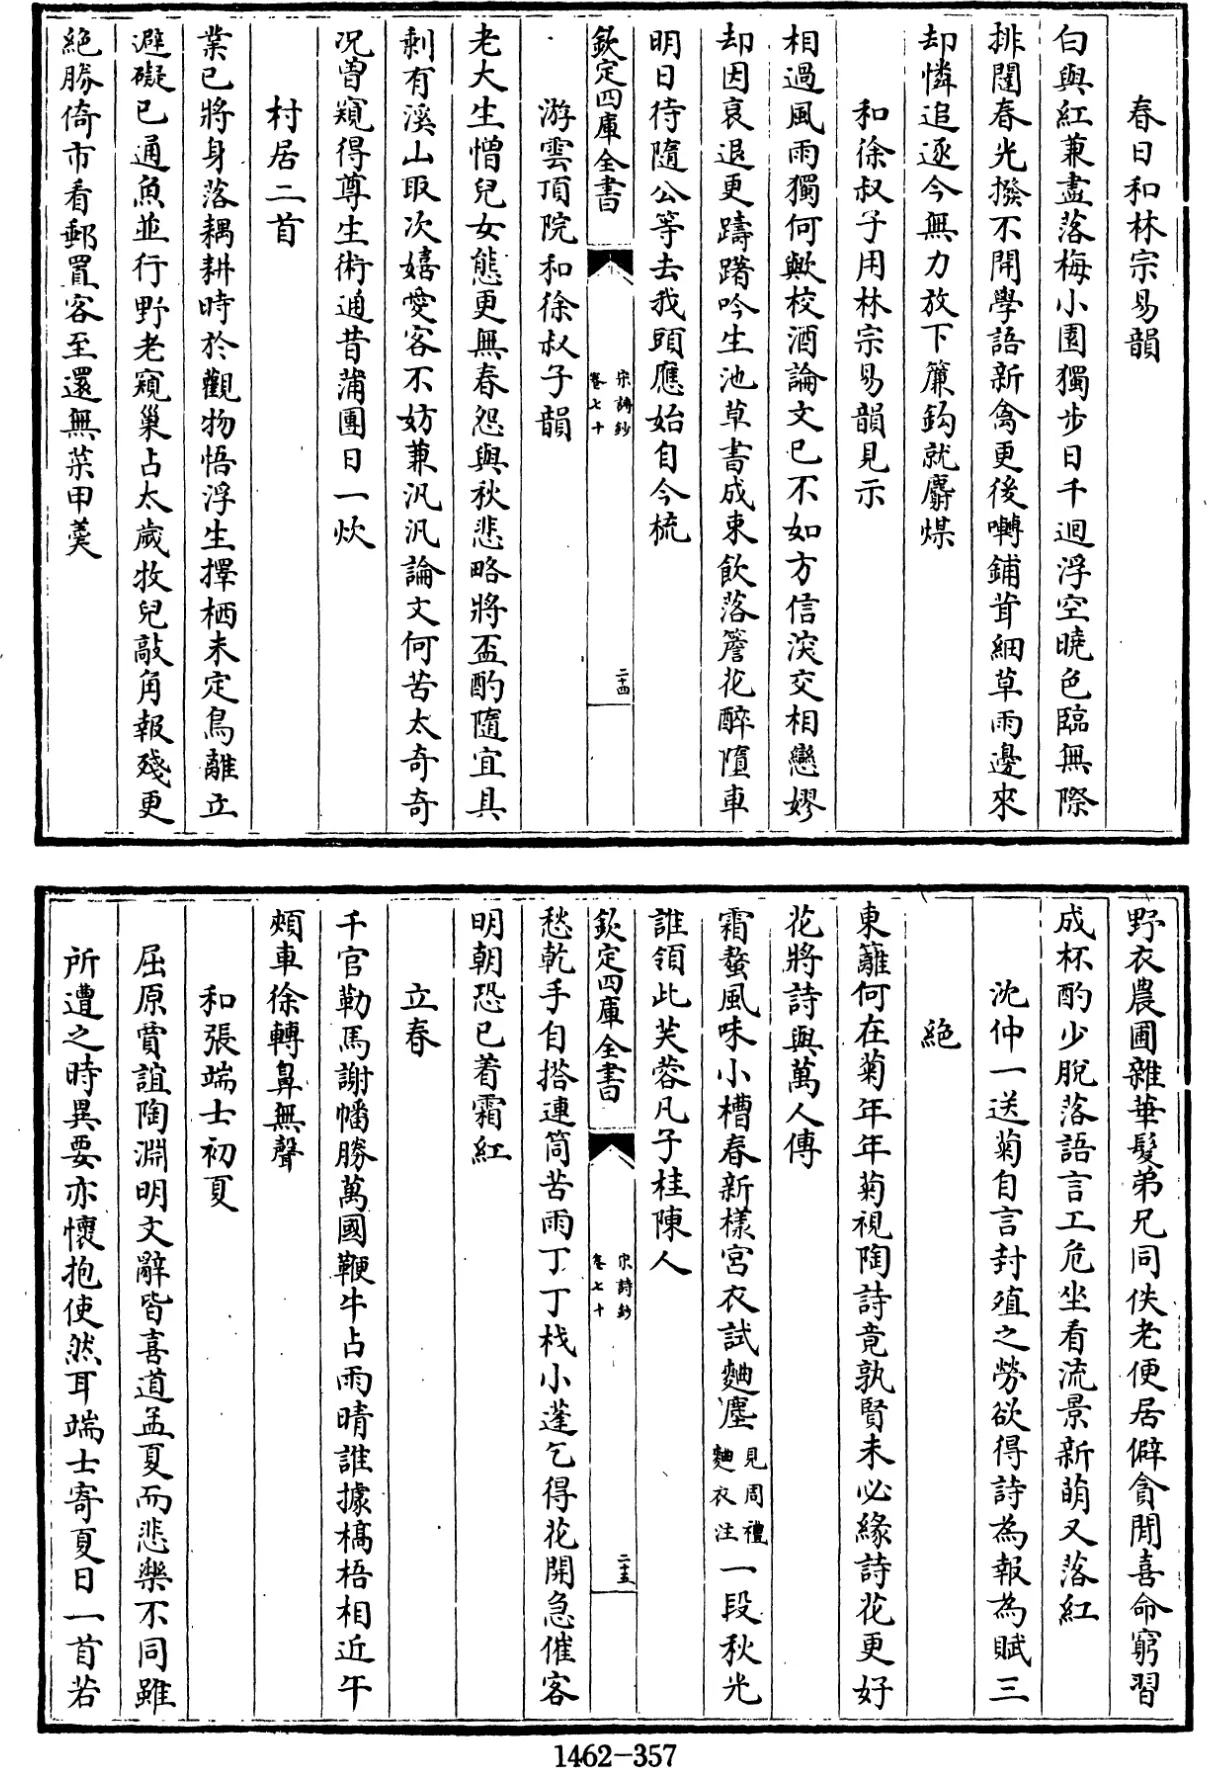 春日和林宗易韻
白與紅兼盡落梅小園獨步日千迴浮空曉色臨無際
排闥春光撥不開學語新禽更後囀鋪茸細草雨邊來
却憐追逐今無力放下簾鈎就麝煤
和徐叔子用林宗易韻見示
相過風雨獨何歟校酒論文已不如方信淡交相戀嫪
却因衰退更躊躇吟生池草書成東飲落簷花醉墮車
明日待隨公等去我頭應始自今梳
欽定四庫全書
宋詩鈔
卷七十
二十四
游雲頂院和徐叔子韻
老大生憎兒女態更無春怨與秋悲略將盃酌隨宜具
剩有溪山取次嬉愛客不妨兼汎汎論文何苦太奇奇
况曽窺得尊生術通昔蒲團日一炊
村居二首
業已將身落耦耕時於觀物悟浮生擇栖未定鳥離立
避礙已通魚並行野老窺巢占太歲牧兒敲角報殘更
絶勝倚市看郵置客至還無菜甲羮
野衣農圃雜華髮弟兄同佚老便居僻貪閒喜命窮習
成杯酌少脫落語言工危坐看流景新萌又落紅
沈仲一送菊自言封殖之勞欲得詩為報為賦三
絶
東籬何在菊年年菊視陶詩竟孰賢未必緣詩花更好
花將詩與萬人傳
霜螯風味小槽春新樣宮衣試麯塵見周禮麯衣注一段秋光
誰領此芙蓉凡子桂陳人
欽定四庫全書
宋詩鈔
卷七十
二十五
愁乾手自搭連筒苦雨丁丁栈小蓬乞得花開急催客
明朝恐已着霜紅
立春
千官勒馬謝幡勝萬國鞭牛占雨晴誰據槁梧相近午
頰車徐轉鼻無聲
和張端士初夏
屈原賈誼陶淵明文辭皆喜道孟夏而悲樂不同雖
所遭之時異要亦懷抱使然耳端士寄夏日一首若
1462-357